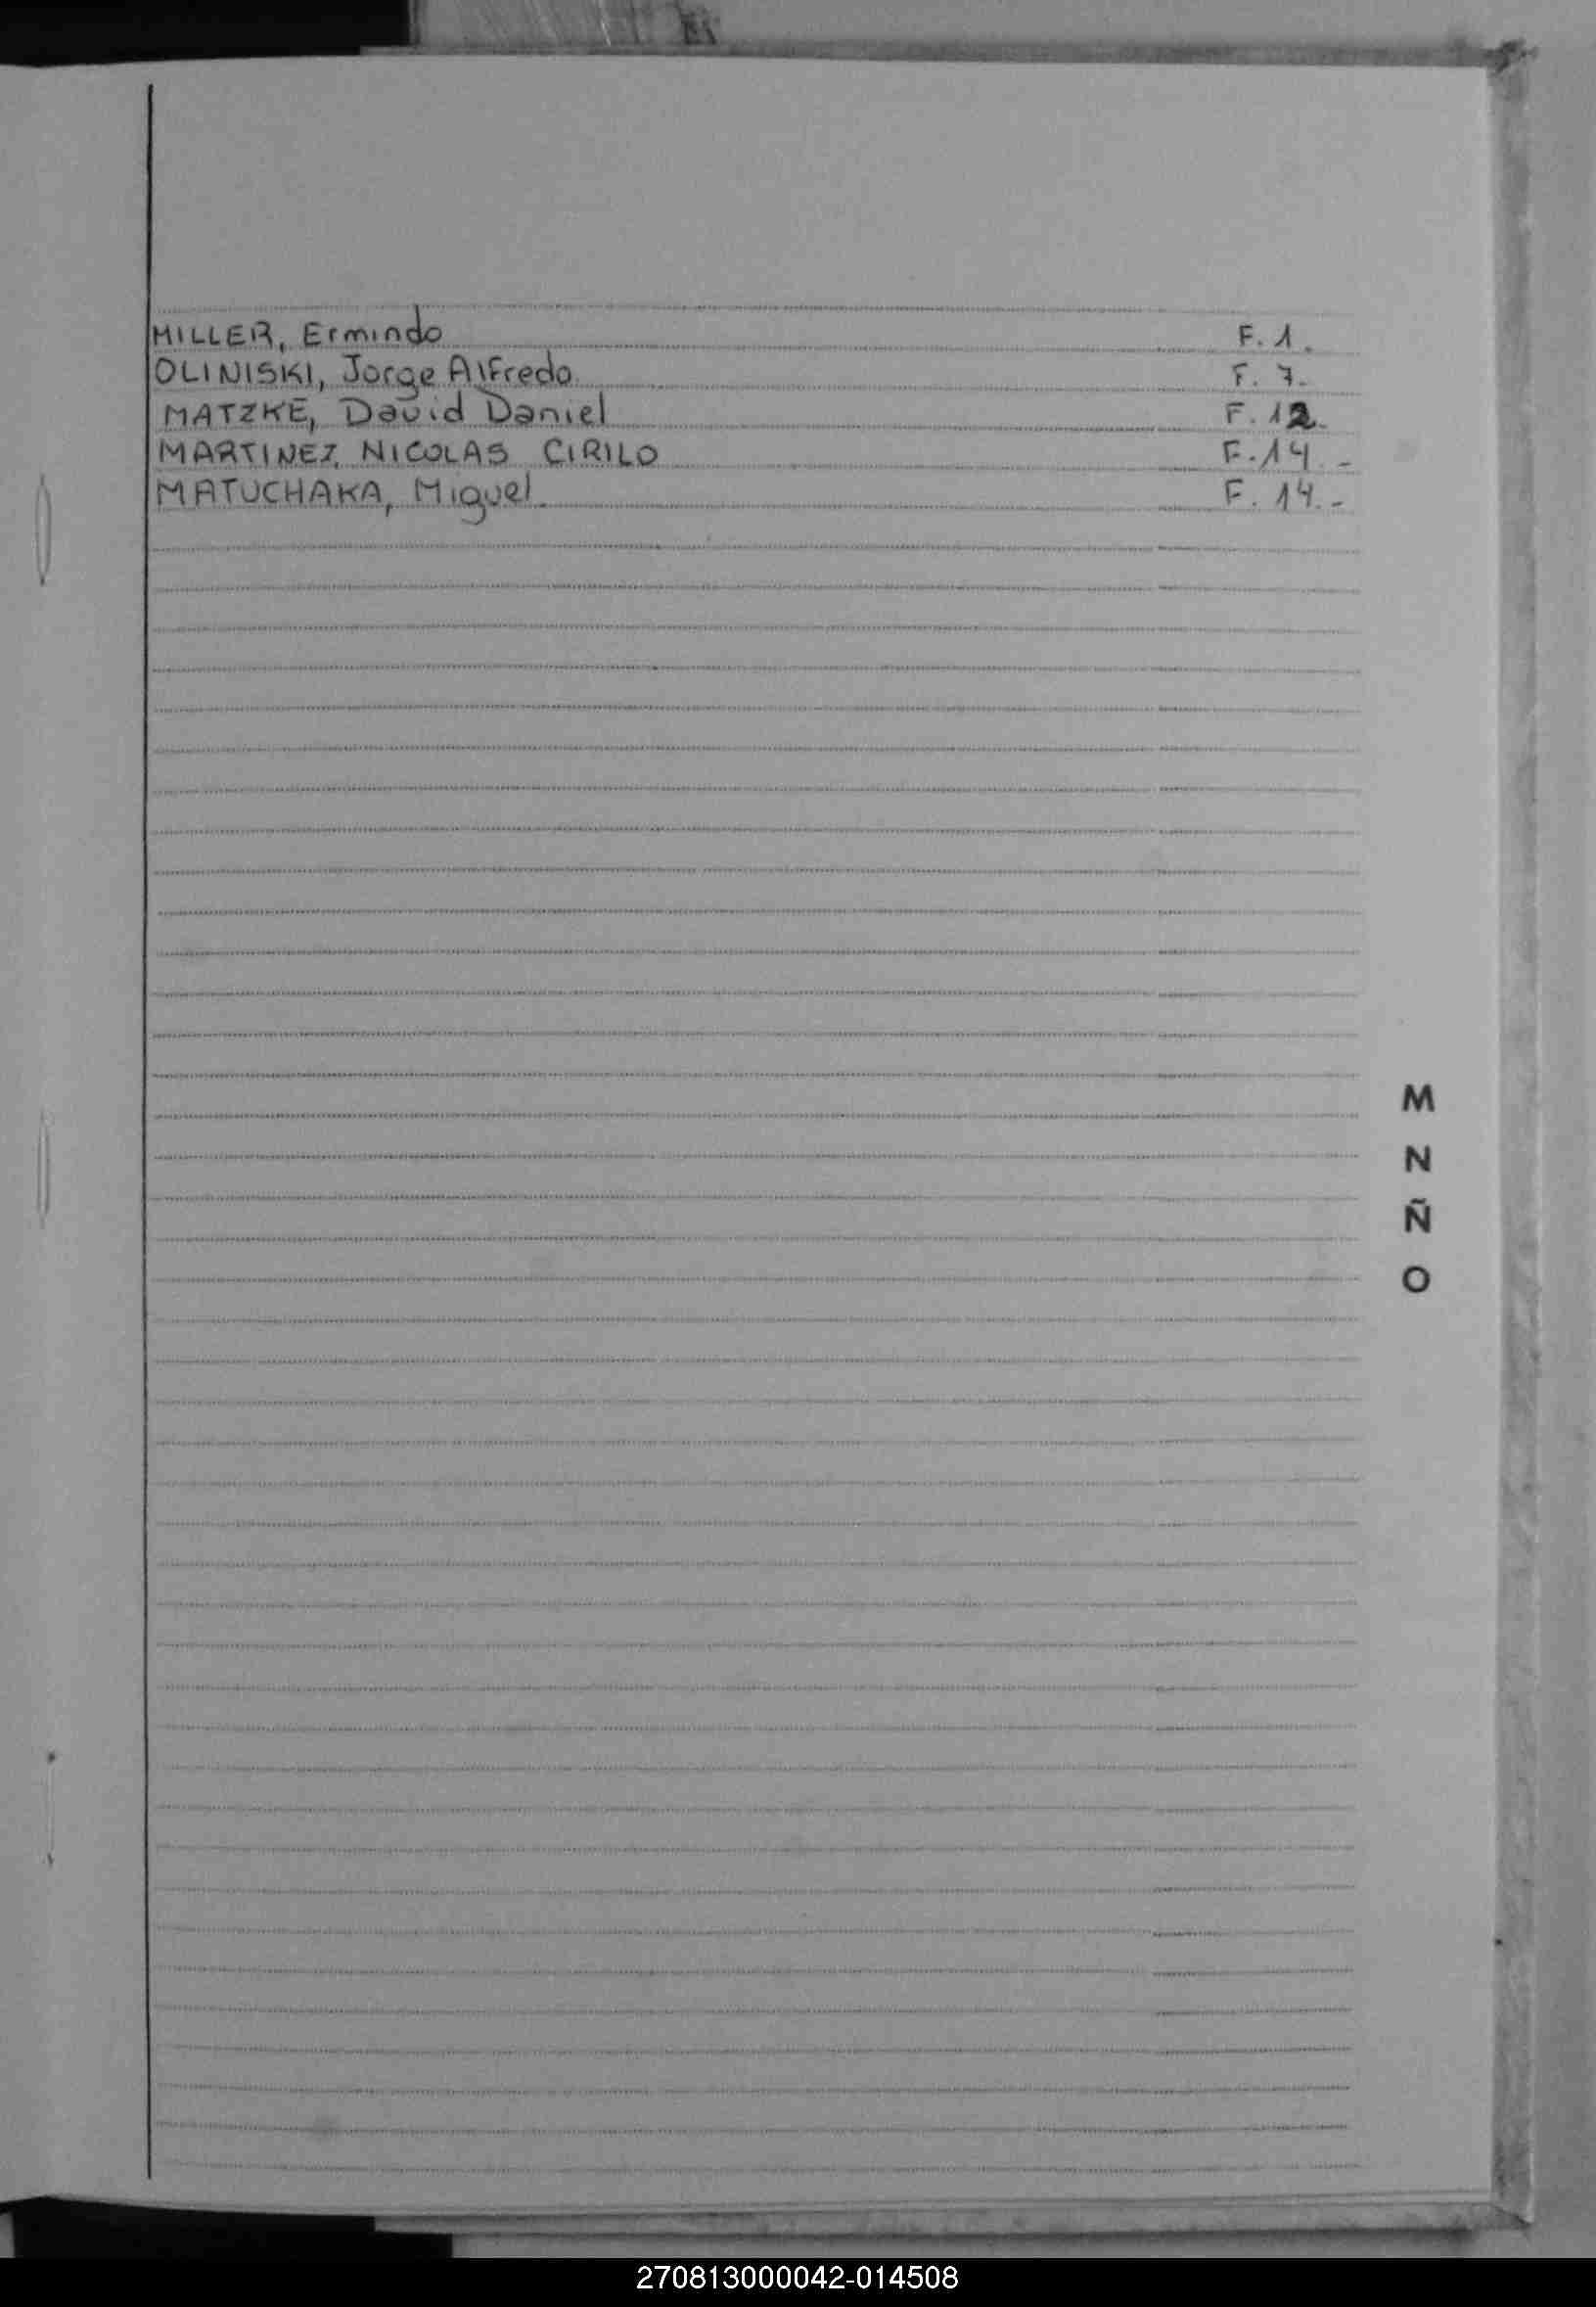 MILLER, Ermindo F. 1.
OLINISKI, Jorge Alfredo. F. 7.
MATZKE, David Daniel F. 12.
MARTINEZ NICOLAS CIRILO F. 14.-
MATUCHAKA, Miguel. F. 14.-
M
N
Ñ
O
270813000042-014508